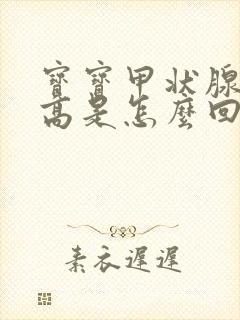 寶寶甲狀腺
高是怎麼回
素衣遲遲